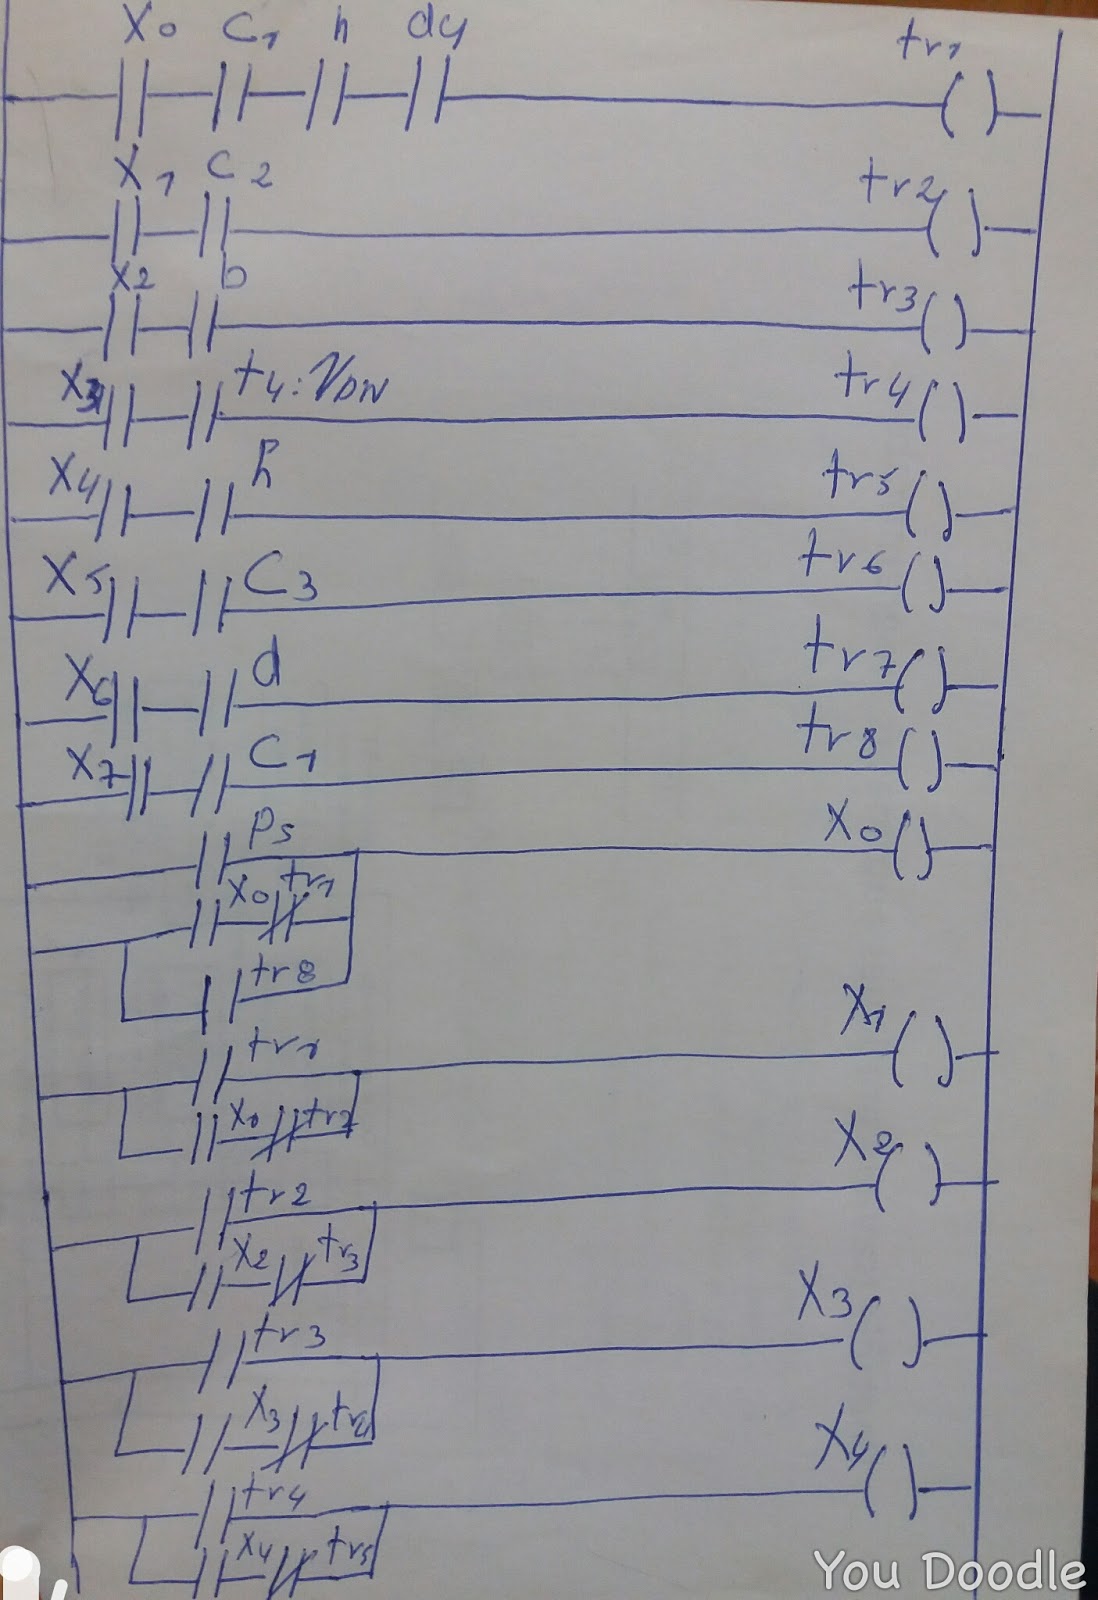 X0 C1 h dy tr1
X1 C2 tr2
X2 b tr3
X3 t4: VDN tr4
X4 h tr5
X5 C3 tr6
X6 d tr7
X7 C1 tr8
Ps X0
X0 tr1
tr8
tr1 X1
tr2
tr2 X2
X2 tr3
tr3 X3
X3 tr4
tr4 X4
X4 tr5
You Doodle